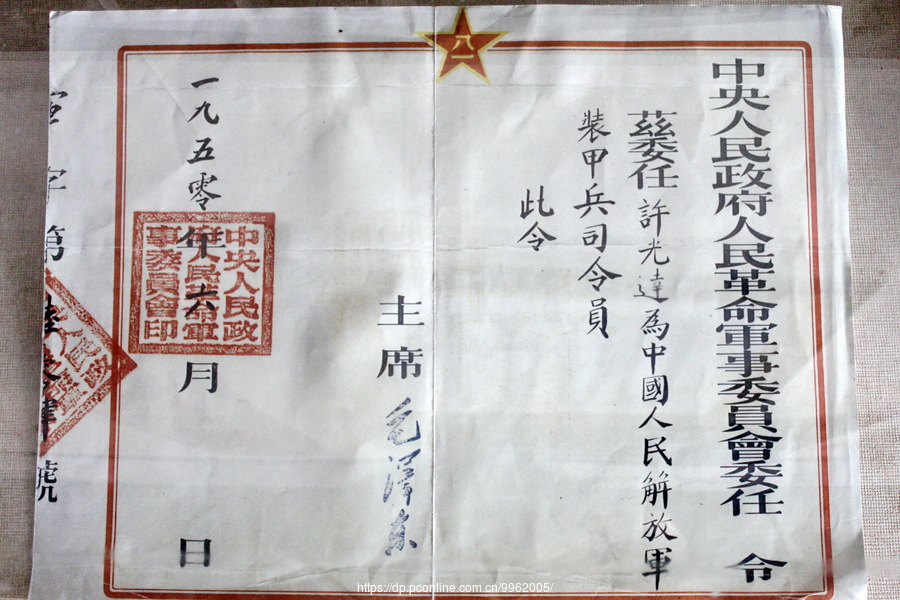 八一
中央人民政府人民革命軍事委員會委任令
茲委任許光達為中國人民解放軍
裝甲兵司令員
此令
主席毛澤東
一九五零年六月 日
中央人民政府人民革命軍事委員會印
字第
號
https://dp.pconline.com.cn/9962005/